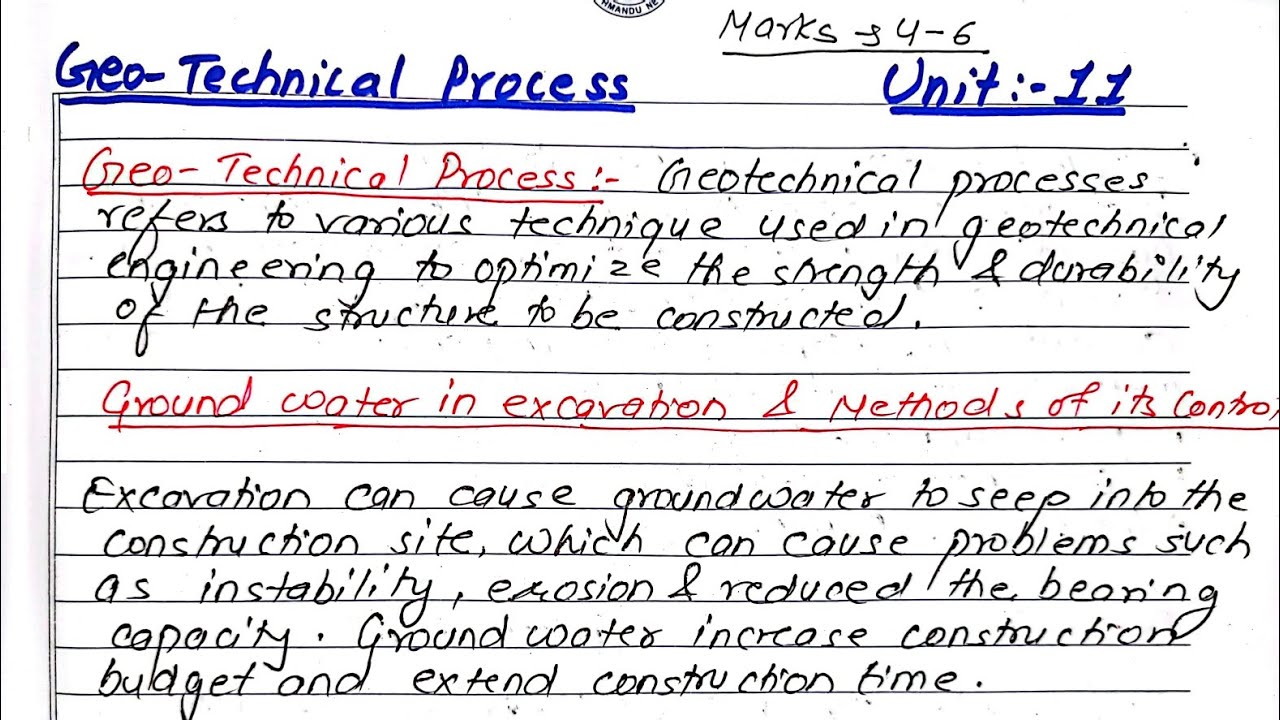 HMANDU NE
Marks → 4-6
Geo-Technical Process Unit:- 11
Geo-Technical Process:- Geotechnical processes
refers to various technique used in geotechnical
engineering to optimize the strength & durability
of the structure to be constructed.
Ground water in excavation & Methods of its Contro
Excavation can cause groundwater to seep into the
construction site, which can cause problems such
as instability, erosion & reduced the bearing
capacity. Ground water increase construction
budget and extend construction time.